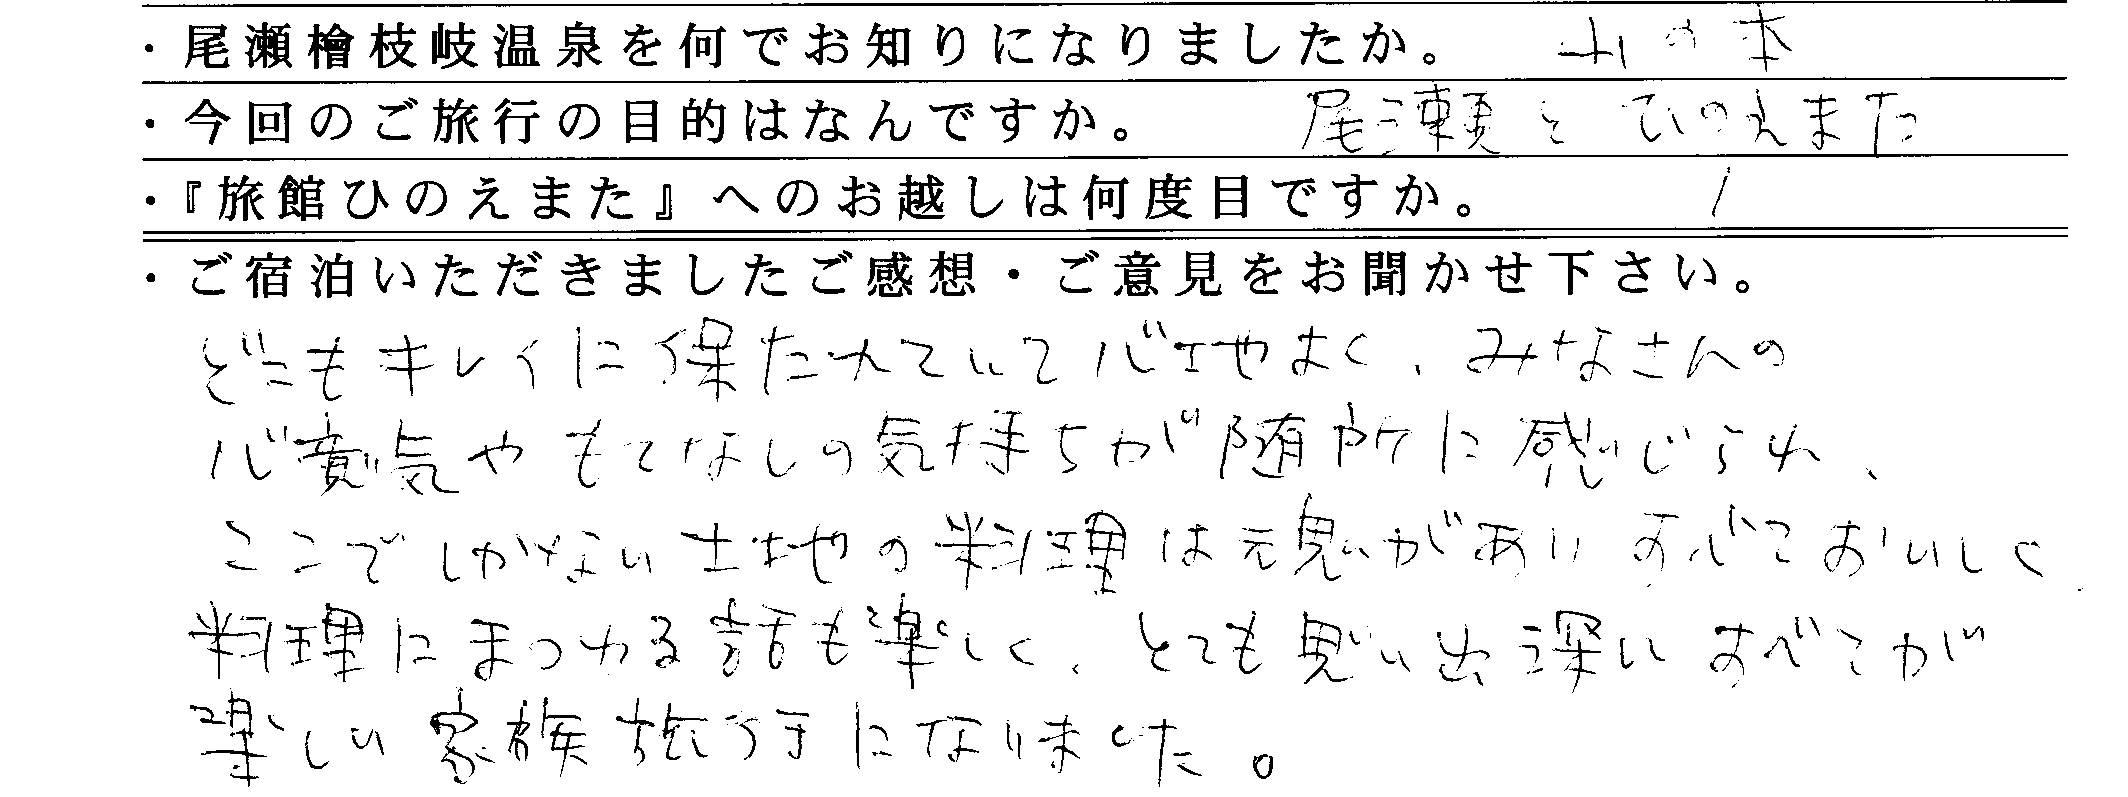 ・尾瀬檜枝岐温泉を何でお知りになりましたか。 山の本
・今回のご旅行の目的はなんですか。 尾瀬とひのえまた
・『旅館ひのえまた』へのお越しは何度目ですか。 1
・ご宿泊いただきましたご感想・ご意見をお聞かせ下さい。
どこもキレイに保たれていて心地よく、みなさんの
心意気やもてなしの気持ちが随所に感じられ、
ここでしかない土地の料理は魂があり すべておいしく
料理にまつわる話も楽しく、とても思い出深い すべてが
楽しい家族旅行になりました。